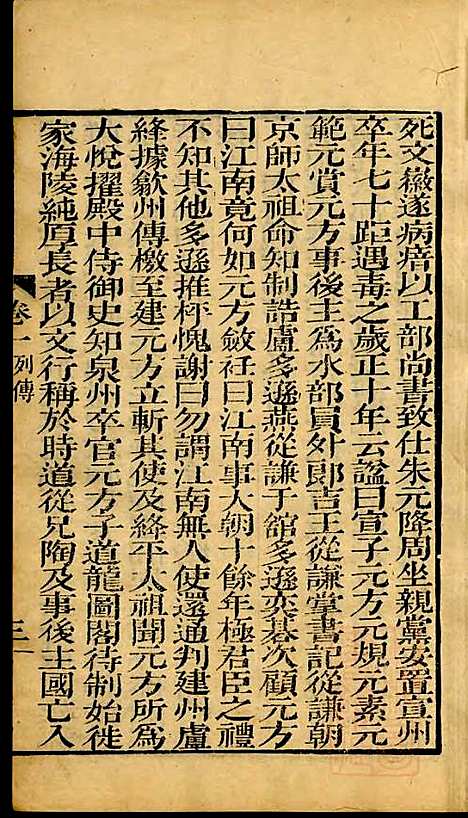 死文徽遂病瘖以工部尚書致仕朱元降周坐親黨安置宣州
卒年七十距遇毒之歲正十年云諡曰宣子元方元規元素元
範元賞元方事後主為水部員外郎吉王從謙掌書記從謙朝
京師太祖命知制誥盧多遜燕從謙于館多遜奕棊次顧元方
曰江南竟何如元方斂衽曰江南事大朝十餘年極君臣之禮
不知其他多遜推枰愧謝曰勿謂江南無人使還通判建州盧
絳據歙州傳檄至建元方立斬其使及絳平太祖聞元方所為
大悅擢殿中侍御史知泉州卒官元方子道龍圖閣待制始徙
家海陵純厚長者以文行稱於時道從兄陶及事後主國亡入
卷一列傳
三